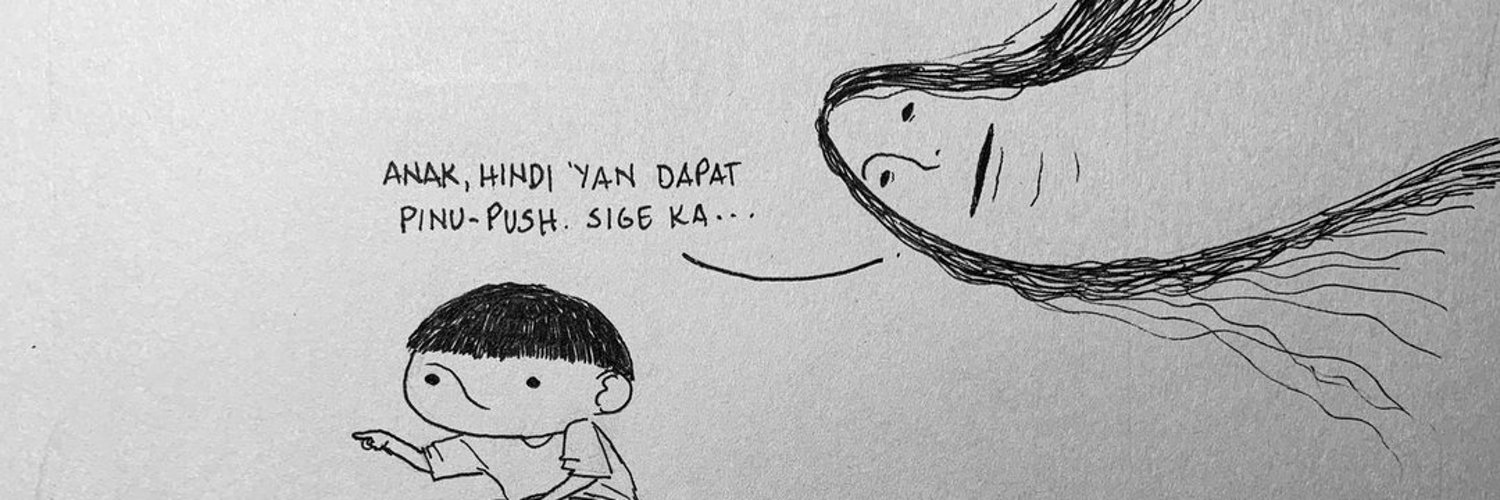 ANAK, HINDI 'YAN DAPAT
PINU-PUSH. SIGE KA...